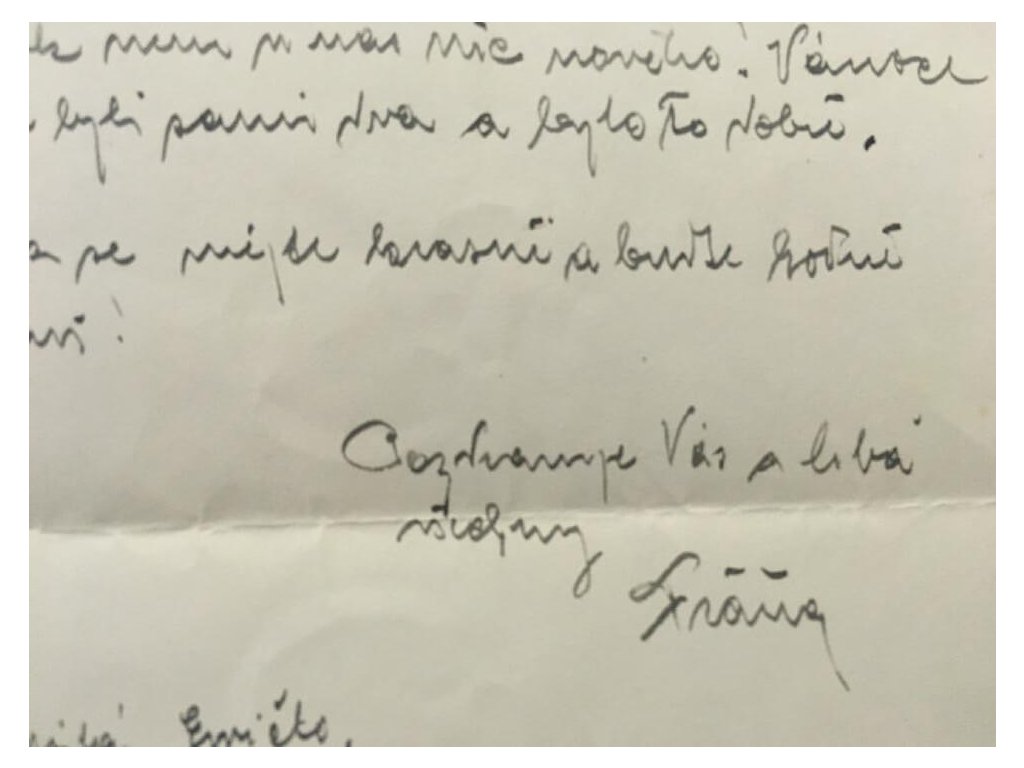 není u nás nic nového! Vánoce
byli sami dva a bylo to dobré.
se mějte krásně a buďte hodně
Pozdravuje Vás a líbá
všechny
Fráňa
Emičko,